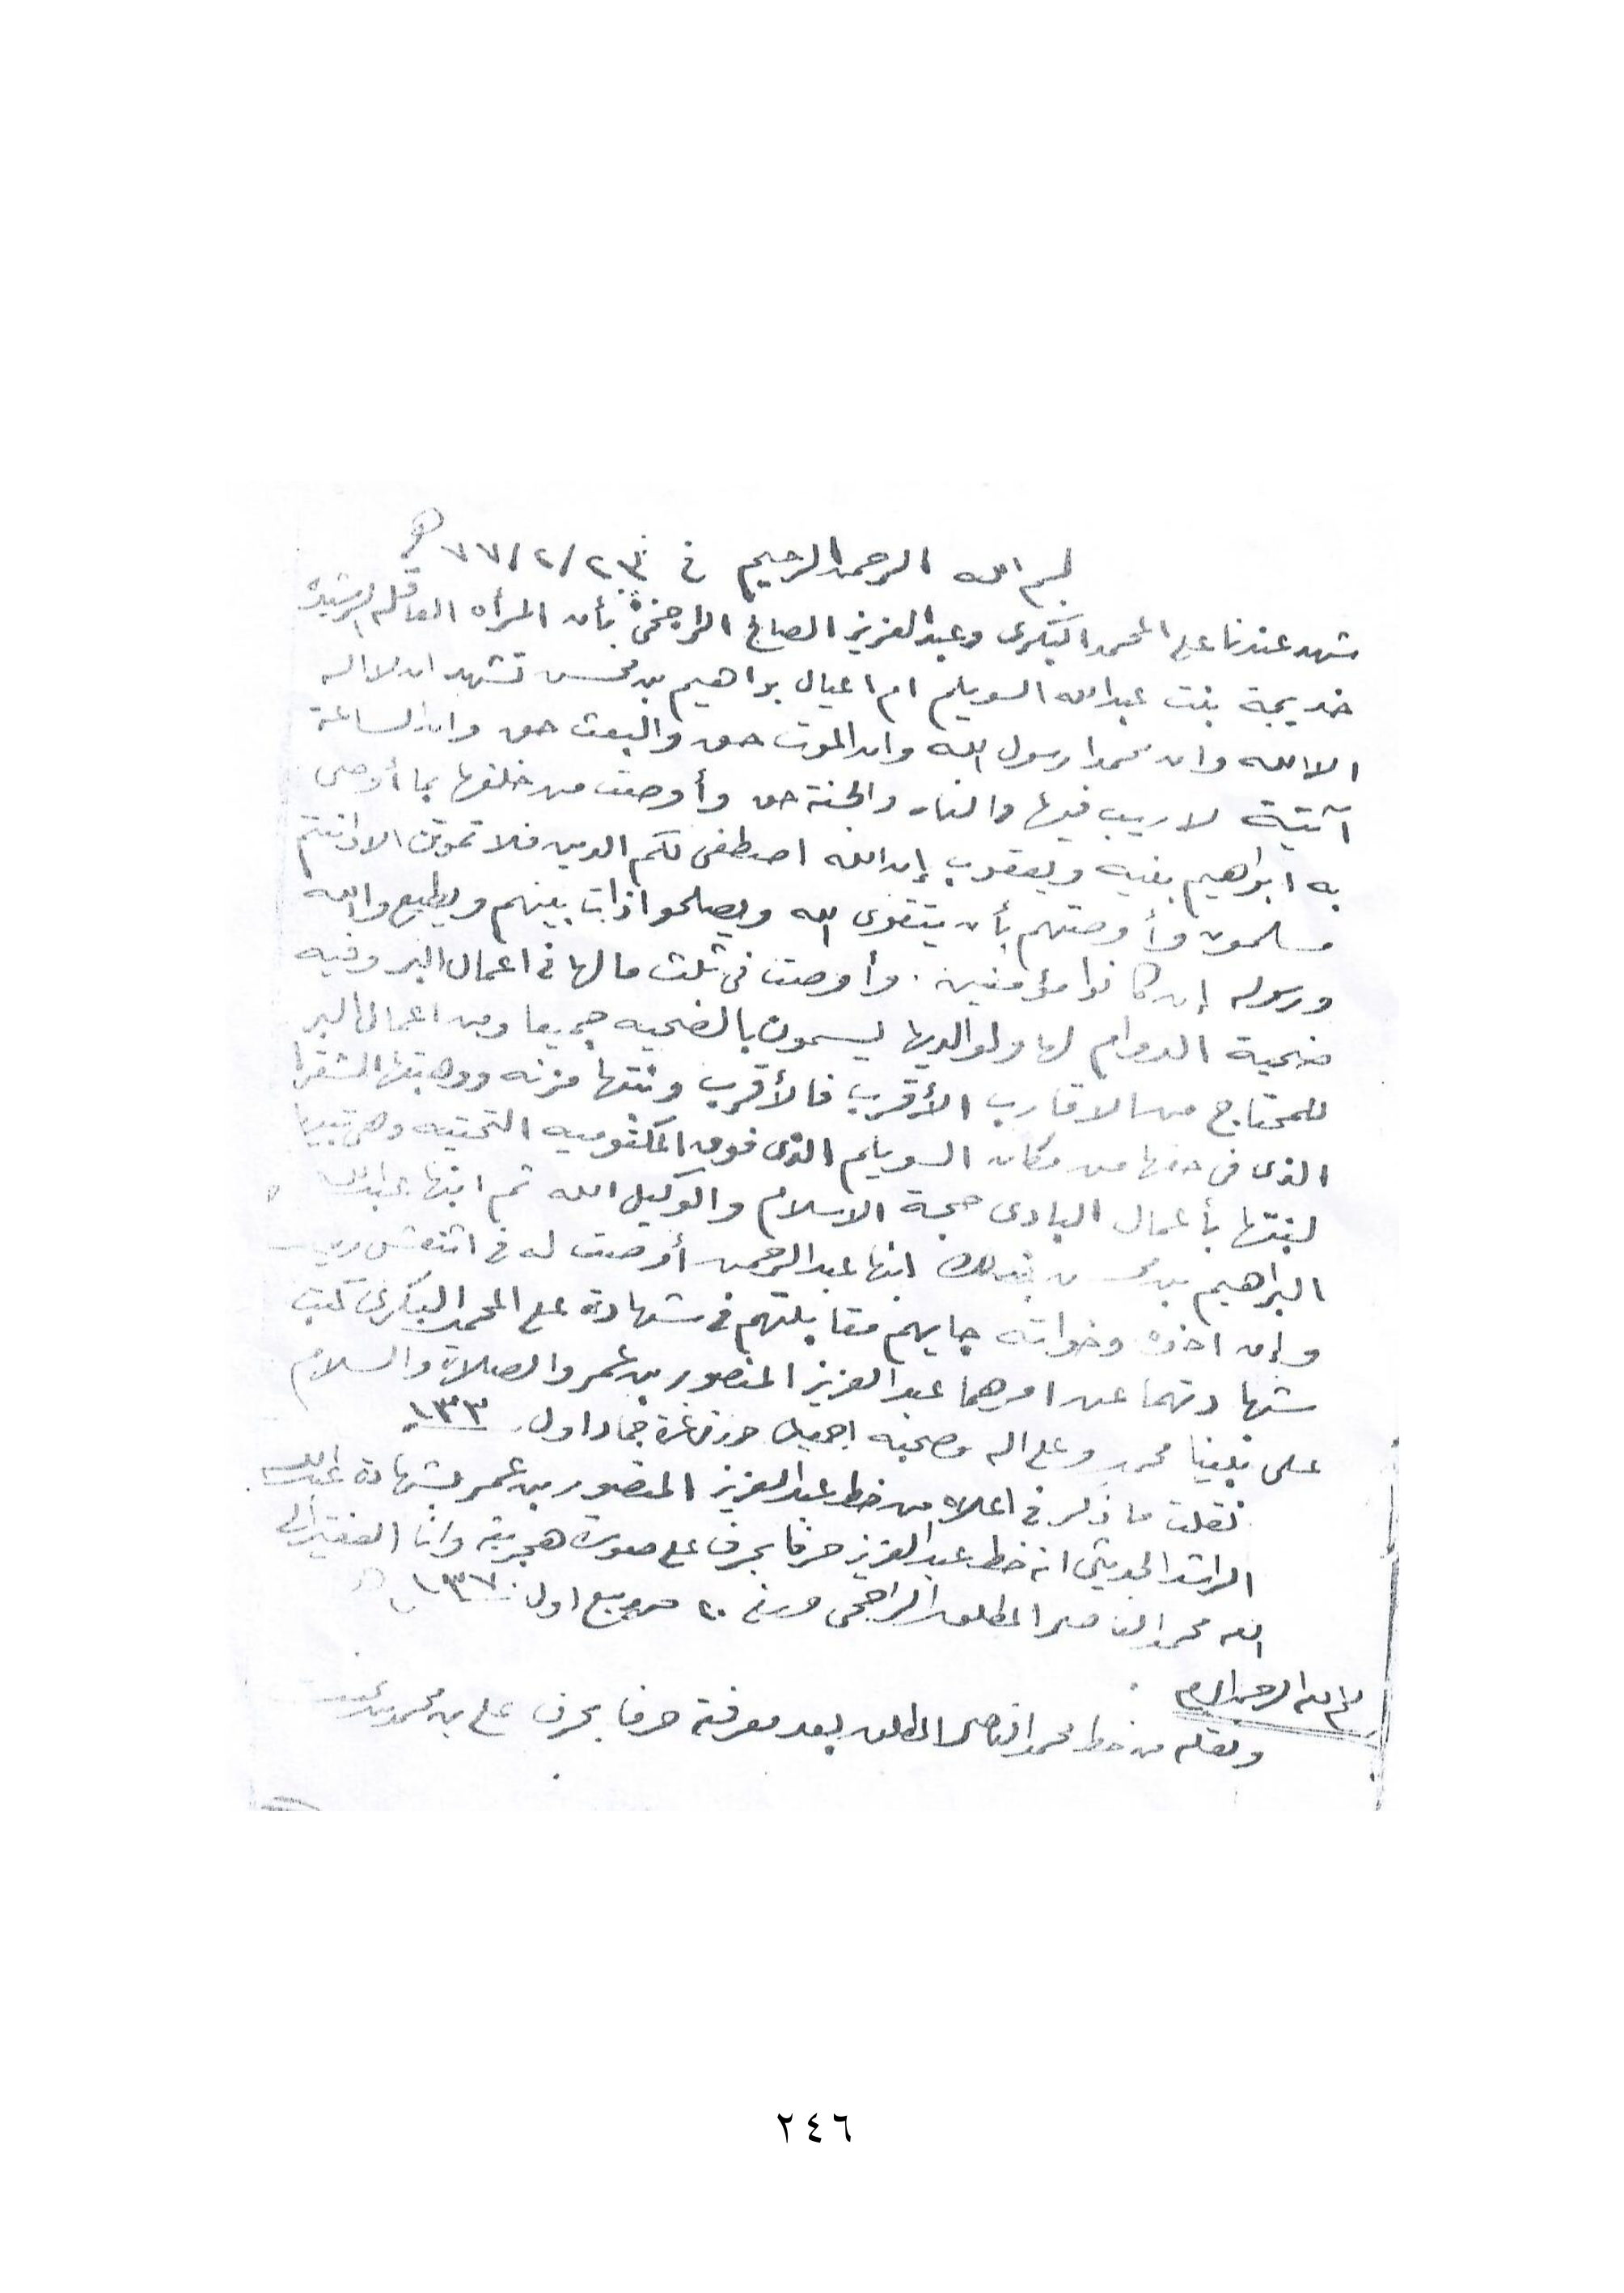 بسم الله الرحمن الرحيم في ٧٧/٢/٢٣ هـ
شهد عندنا علي المحمد البكري وعبدالعزيز الصالح الراجحي بأن المرأه العاقله الرشيده
خديجة بنت عبدالله السويلم ام اعيال براهيم بن محسن تشهد ان لا اله
الا الله وان محمدا رسول الله وان الموت حق والبعث حق وان الساعة
آتية لا ريب فيها والنار والجنة حق وأوصت من خلفها بما أوصى
به ابراهيم بنيه ويعقوب إن الله اصطفى لكم الدين فلا تموتن الا وانتم
مسلمون وأوصتهم بأن يتقوى الله ويصلحوا ذات بينهم ويطيعوا الله
ورسوله إن كانوا مؤمنين . وأوصت في ثلث مالها في اعمال البر وفيه
ضحية الدوام لها ولوالديها ليسمون بالضحيه جميعا ومن اعمال البر
للمحتاج من الاقارب الأقرب فالأقرب وبنتها مزنه ووهبتها الشقرا
الذي في حقها من مكان السويلم الذي فوق المكتوميه التحتيه وهي
لبنتها بأعمال البادى حجة الاسلام والوكيل الله ثم ابنها عبدالله
البراهيم بن ابنها عبدالرحمن أوصت له في
وإن اخذه وخواته جايهم مقابلتهم في شهادة علي المحمد البكري كتب
شهادتهما عن امرهما عبدالعزيز المنصور بن عمر والصلاة والسلام
على نبينا محمد وعلى اله وصحبه اجمعين حرر في غرة جماد اول ١٣٣٠
نقلت ما ذكر في اعلاه من خط عبدالعزيز المنصور بن عمر بشهادة عبدالله
الراشد انه خط عبدالعزيز حرفا بحرف على وانا الفقير الى
الله محمد الناصر المطلق الراجحي ٢٠ ربيع اول ١٣٧٠
بسم الله الرحمن الرحيم
ونقله من خط محمد الناصر المطلق بعد معرفة حرفا بحرف علي بن محمد
٢٤٦